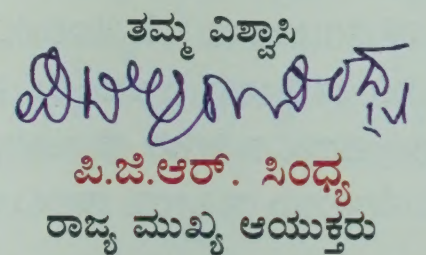 ತಮ್ಮ ವಿಶ್ವಾಸಿ
ಪಿ.ಜಿ.ಆರ್. ಸಿಂಧ್ಯ
ರಾಜ್ಯ ಮುಖ್ಯ ಆಯುಕ್ತರು